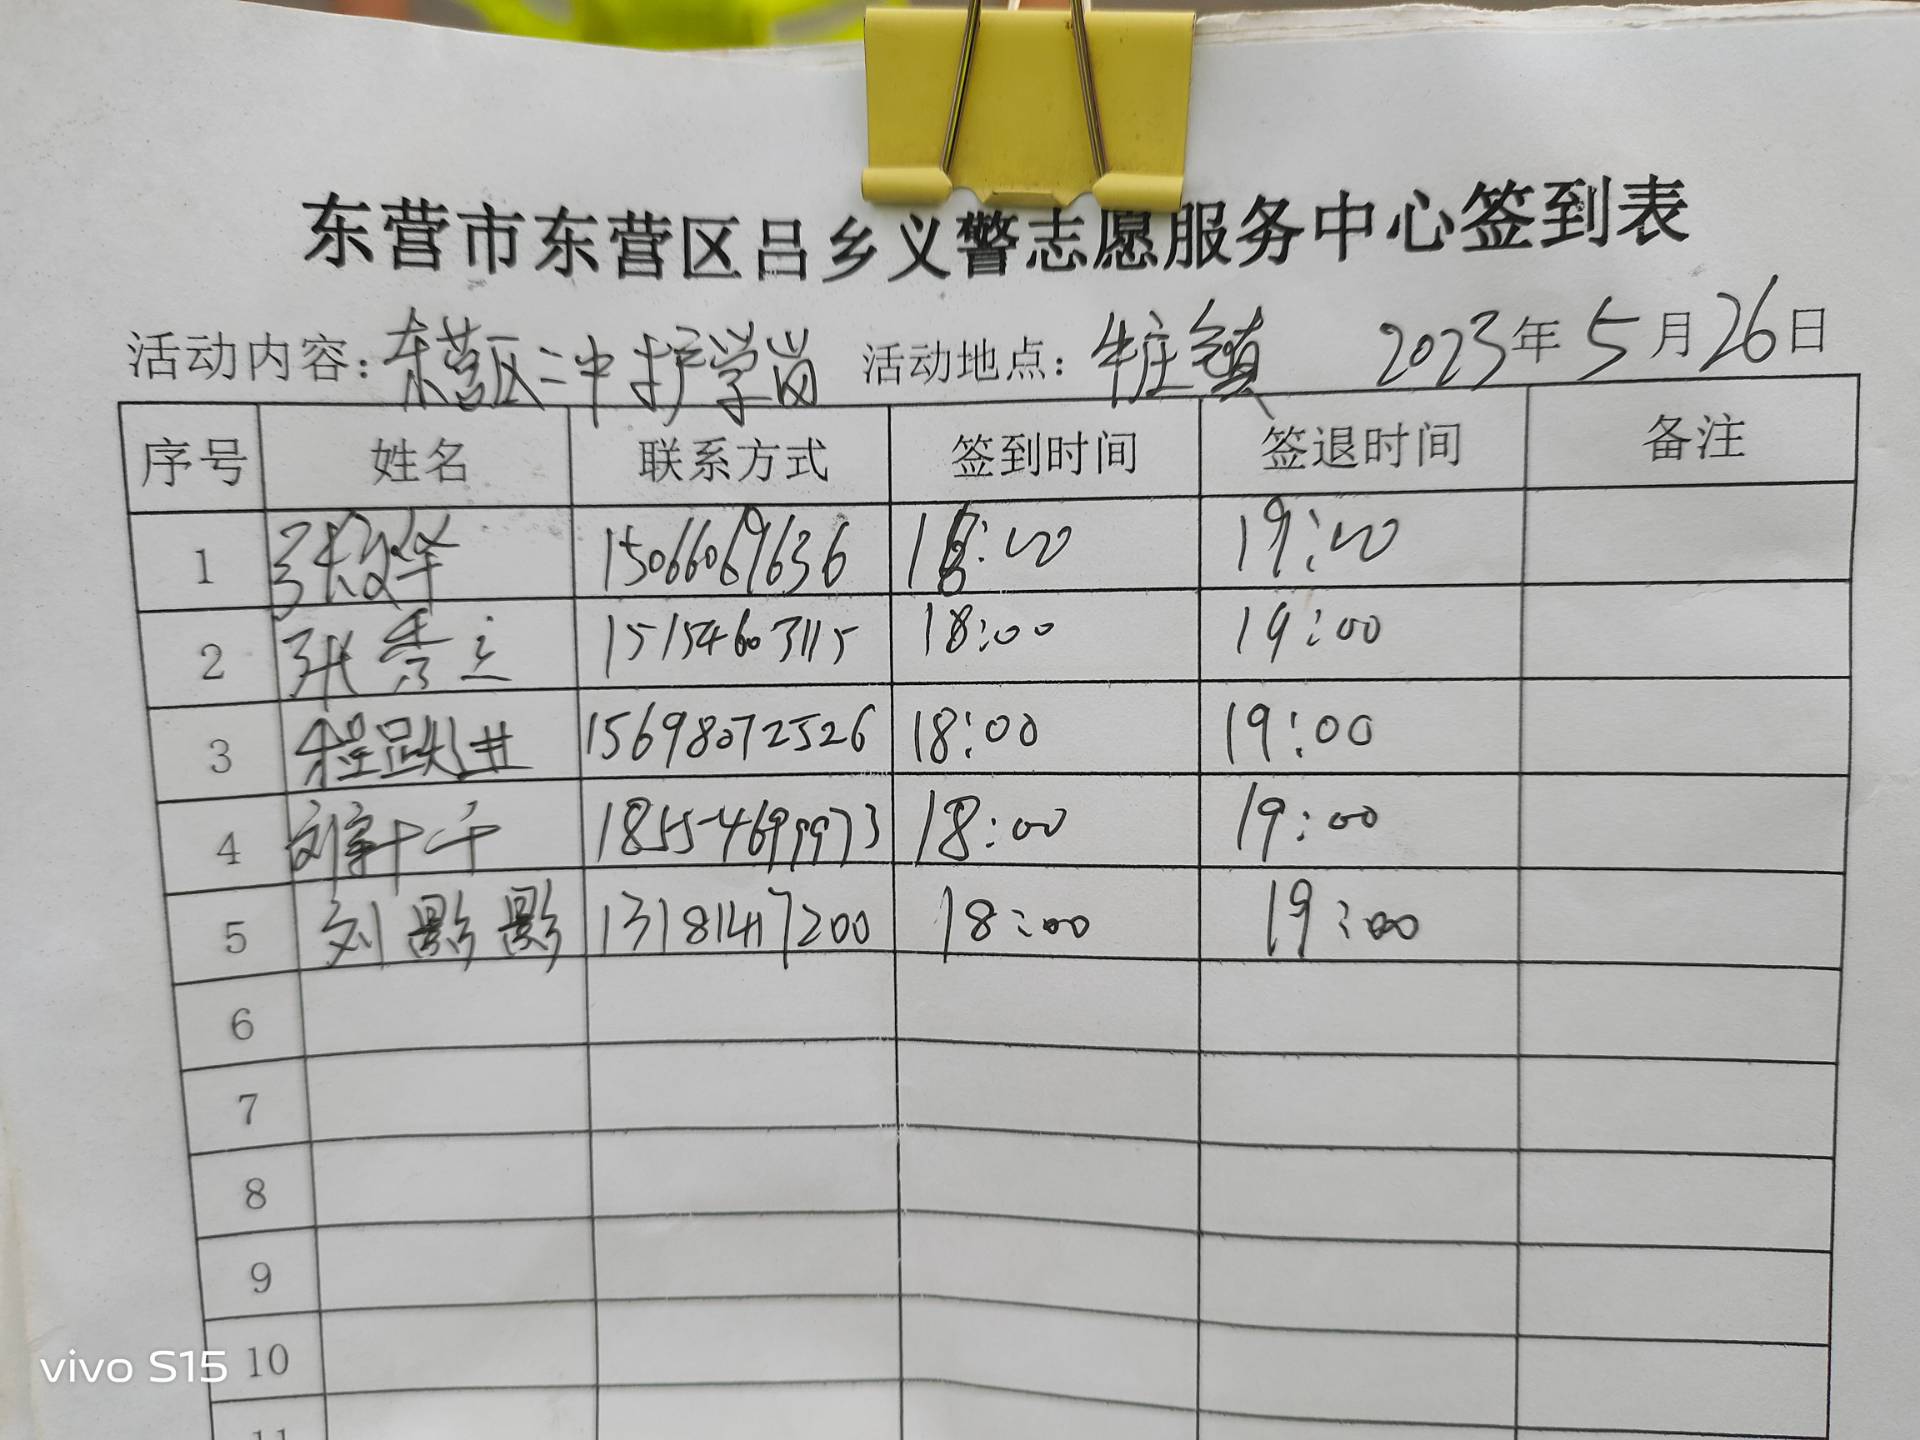 东营市东营区吕乡义警志愿服务中心签到表
活动内容：东营区二中护学岗 活动地点：牛庄镇 2023年5月26日
序号 姓名 联系方式 签到时间 签退时间 备注
1 15066069636 18:00 19:00
2 张秀立 15154603115 18:00 19:00
3 程跃进 15698072526 18:00 19:00
4 18554699973 18:00 19:00
5 刘影影 13181417200 18:00 19:00
6
7
8
9
10
11
vivo S15